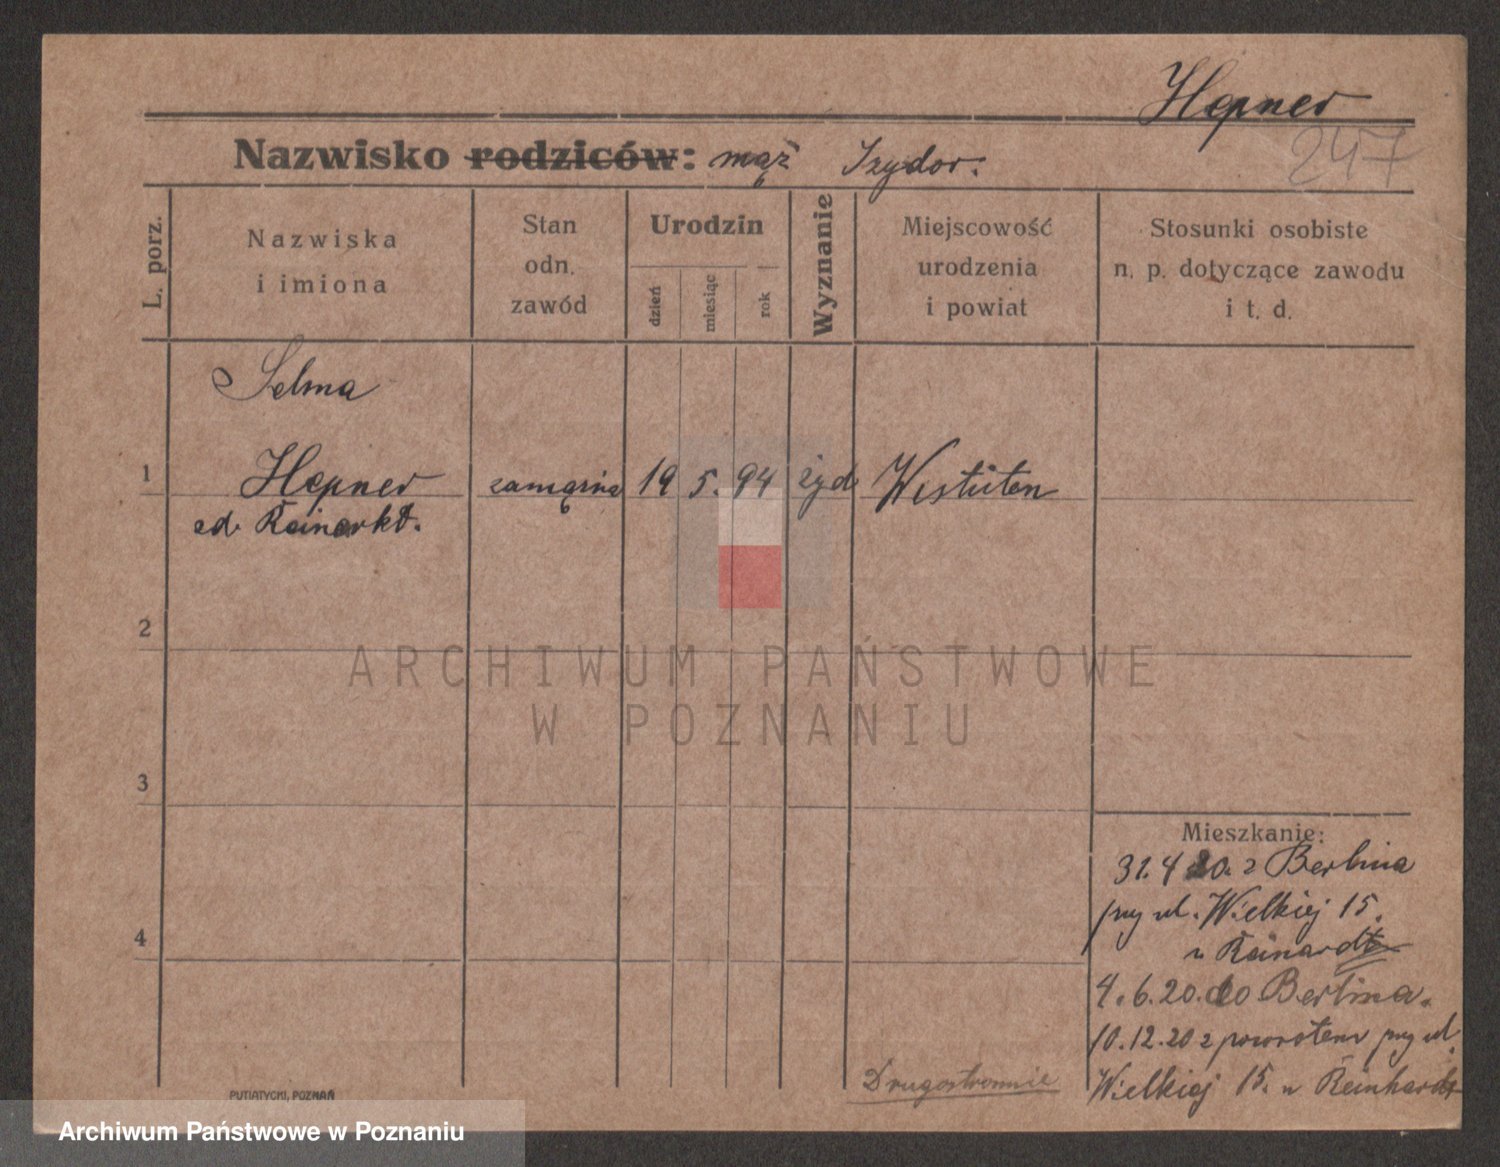 Hepner
247
Nazwisko rodziców: mąż Izydor.
L. porz.
Nazwiska
i imiona
Stan
odn.
zawód
Urodzin
dzień
miesiąc
rok
Wyznanie
Miejscowość
urodzenia
i powiat
Stosunki osobiste
n. p. dotyczące zawodu
i t. d.
Selma
1 Hepner zamężna 19 5. 94 żyd
Reinarkt.
2
ARCHIWUM PAŃSTWOWE
W POZNANIU
3
Mieszkanie:
31.4 20. z Berlina
przy ul. Wielkiej 15.
u Reinardt
4
4.6.20. do Berlina.
10.12.20 z powrotem przy ul.
Wielkiej 15. u Reinhardt
Drugostronnie
PUTIATYCKI, POZNAŃ
Archiwum Państwowe w Poznaniu